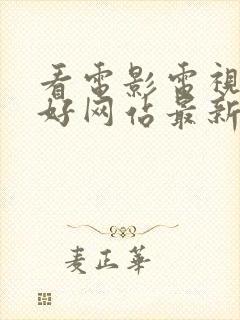 看電影電視
好网佔最新
麦正華